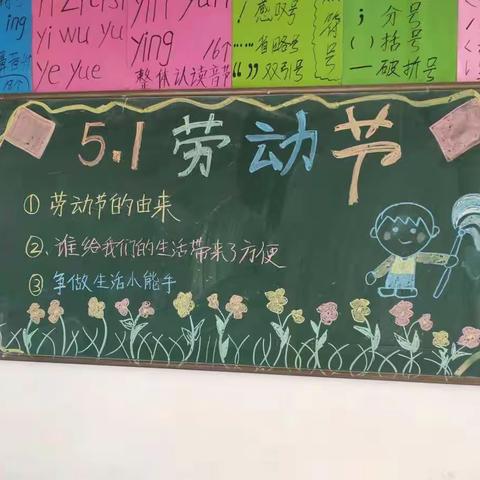 yi wu yu
ye yue
yin yun
ying
16个
整体认读音节
！感叹号
……省略号
“”双引号
；分号
（）括号
—破折号
5.1劳动节
①劳动节的由来
②、谁给我们的生活带来了方便
③争做生活小能手